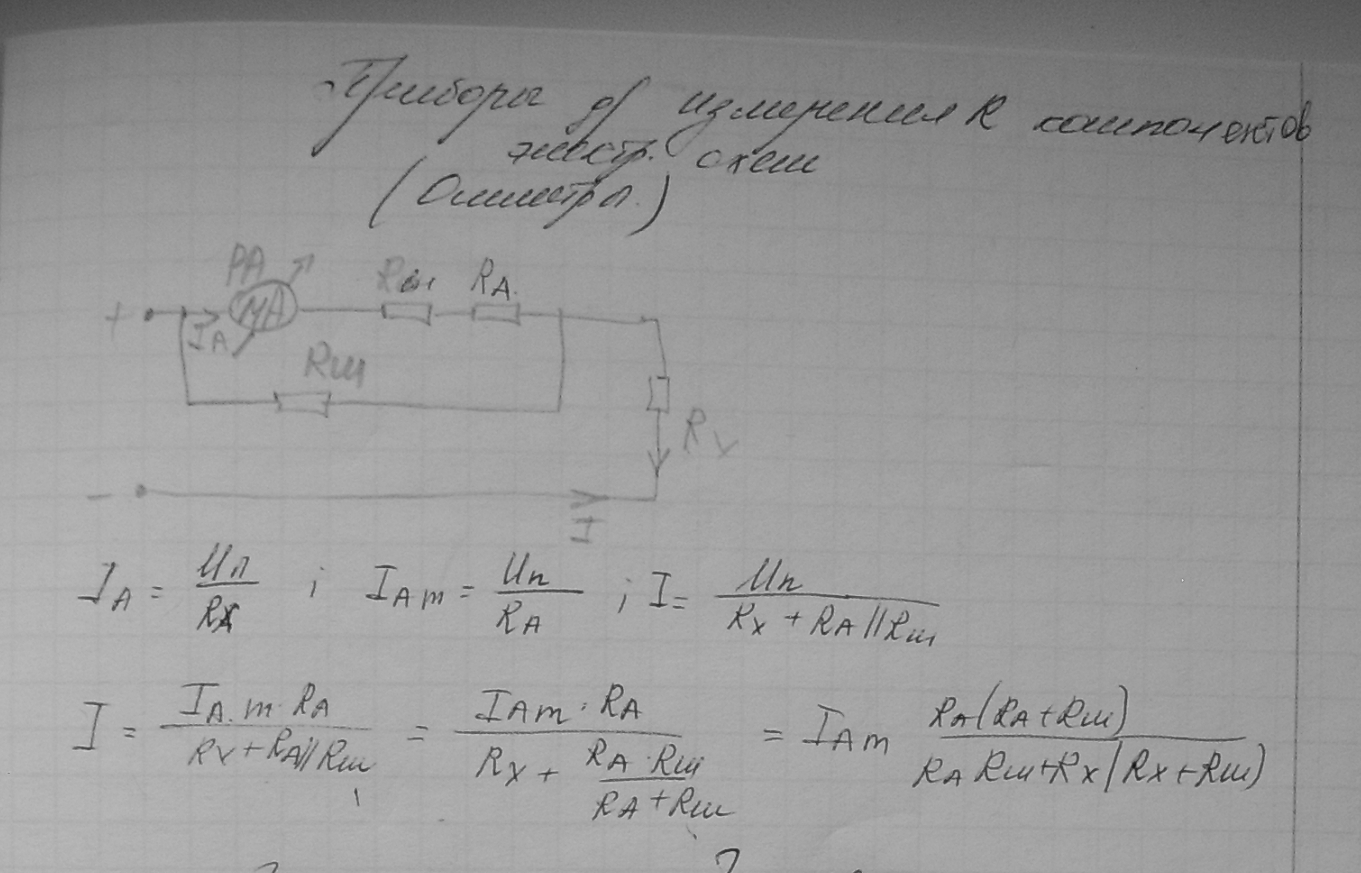 Приборы д/ измерения R компонентов
электр. схем
(Омметры.)
PA
Rвн RA.
+ MA
IA
Rш
Rx
-
I
IA = Uп/Rx ; IAm = Uп/RA ; I = Uп/(Rx + RA//Rш)
I = IA.m·RA/(Rx+RA//Rш) = IAm·RA/(Rx + RA·Rш/(RA+Rш)) = IAm RA(RA+Rш)/(RA Rш+Rx(Rx+Rш))